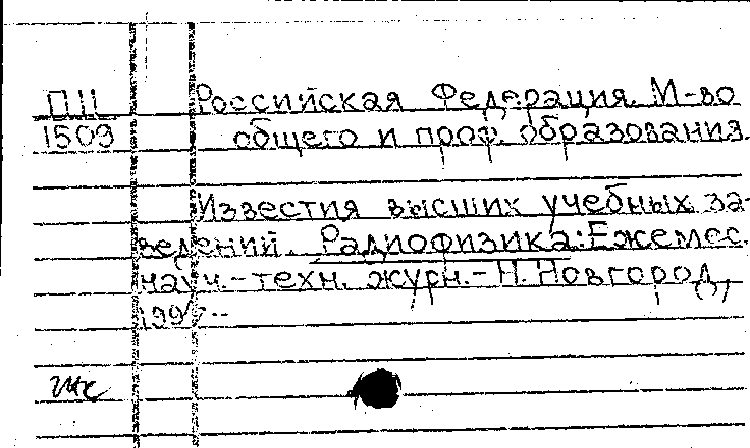 П11 Российская Федерация. М-во
1509 общего и проф. образования.
Известия высших учебных за-
ведений. Радиофизика: Ежемес.
науч.-техн. журн.-Н. Новгород,